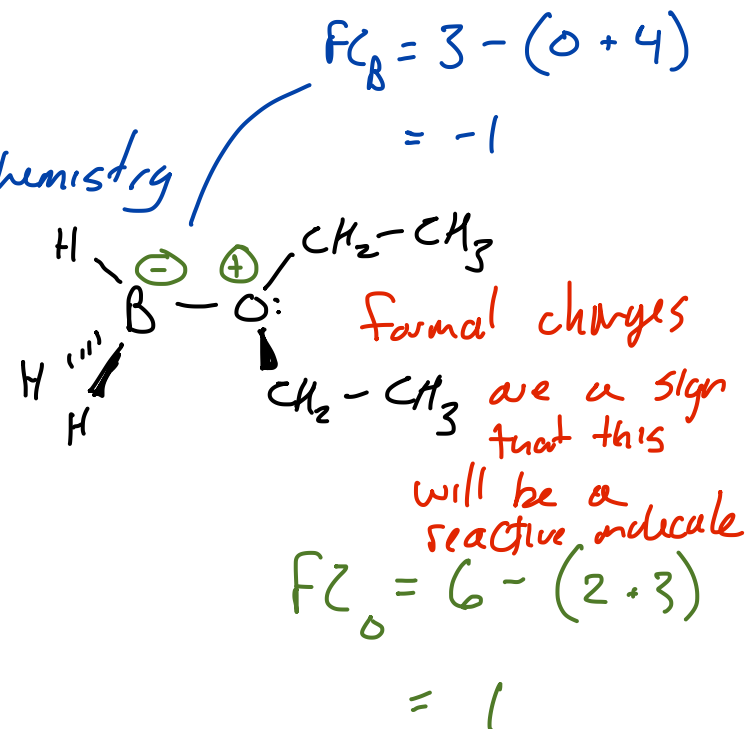 FC_B = 3 - (0 + 4)
= -1
hemistry
H
CH₂-CH₃
⊖ ⊕
B - O:
formal charges
H
H
CH₂ - CH₃
are a sign
that this
will be a
reactive molecule
FC_O = 6 - (2 + 3)
= 1